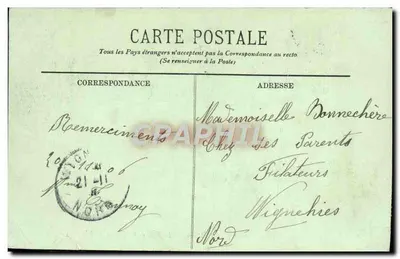 CARTE POSTALE
Tous les Pays étrangers n'acceptent pas la Correspondance au recto
(Se renseigner à la Poste)
CORRESPONDANCE
ADRESSE
Remerciments
Mademoiselle Bonnechère
Chez ses Parents
Filateurs
Wignehies
Nord
21-11
NORD
CPAPHIL